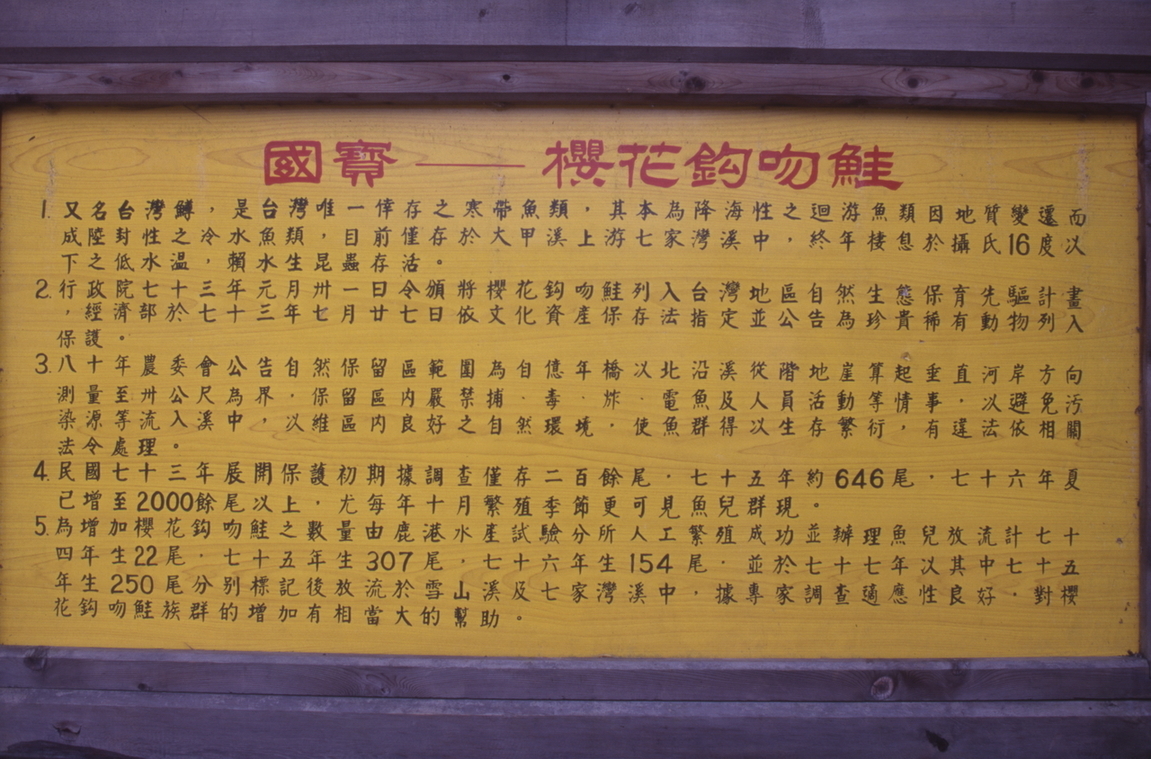 國寶——櫻花鈎吻鮭
1. 又名台灣鱒，是台灣唯一倖存之寒帶魚類，其本為降海性之迴游魚類因地質變遷而
成陸封性之冷水魚類，目前僅存於大甲溪上游七家灣溪中，終年棲息於攝氏16度以
下之低水温，賴水生昆蟲存活。
2. 行政院七十三年元月卅一日令頒將櫻花鈎吻鮭列入台灣地區自然生態保育先驅計畫
，經濟部於七十三年七月廿七日依文化資產保存法指定並公告為珍貴稀有動物列入
保護。
3. 八十年農委會公告自然保留區範圍為自億年橋以北沿溪從階地崖算起垂直河岸方向
測量至卅公尺為界．保留區内嚴禁捕．毒．炸．電魚及人員活動等情事，以避免汚
染源等流入溪中，以維區内良好之自然環境，使魚群得以生存繁衍，有違法依相關
法令處理。
4. 民國七十三年展開保護初期據調查僅存二百餘尾，七十五年約646尾，七十六年夏
已增至2000餘尾以上，尤每年十月繁殖季節更可見魚兒群現。
5. 為增加櫻花鈎吻鮭之數量由鹿港水產試驗分所人工繁殖成功並辦理魚兒放流計七十
四年生22尾．七十五年生307尾，七十六年生154尾．並於七十七年以其中七十五
年生250尾分別標記後放流於雪山溪及七家灣溪中，據專家調查適應性良好，對櫻
花鈎吻鮭族群的增加有相當大的幫助。